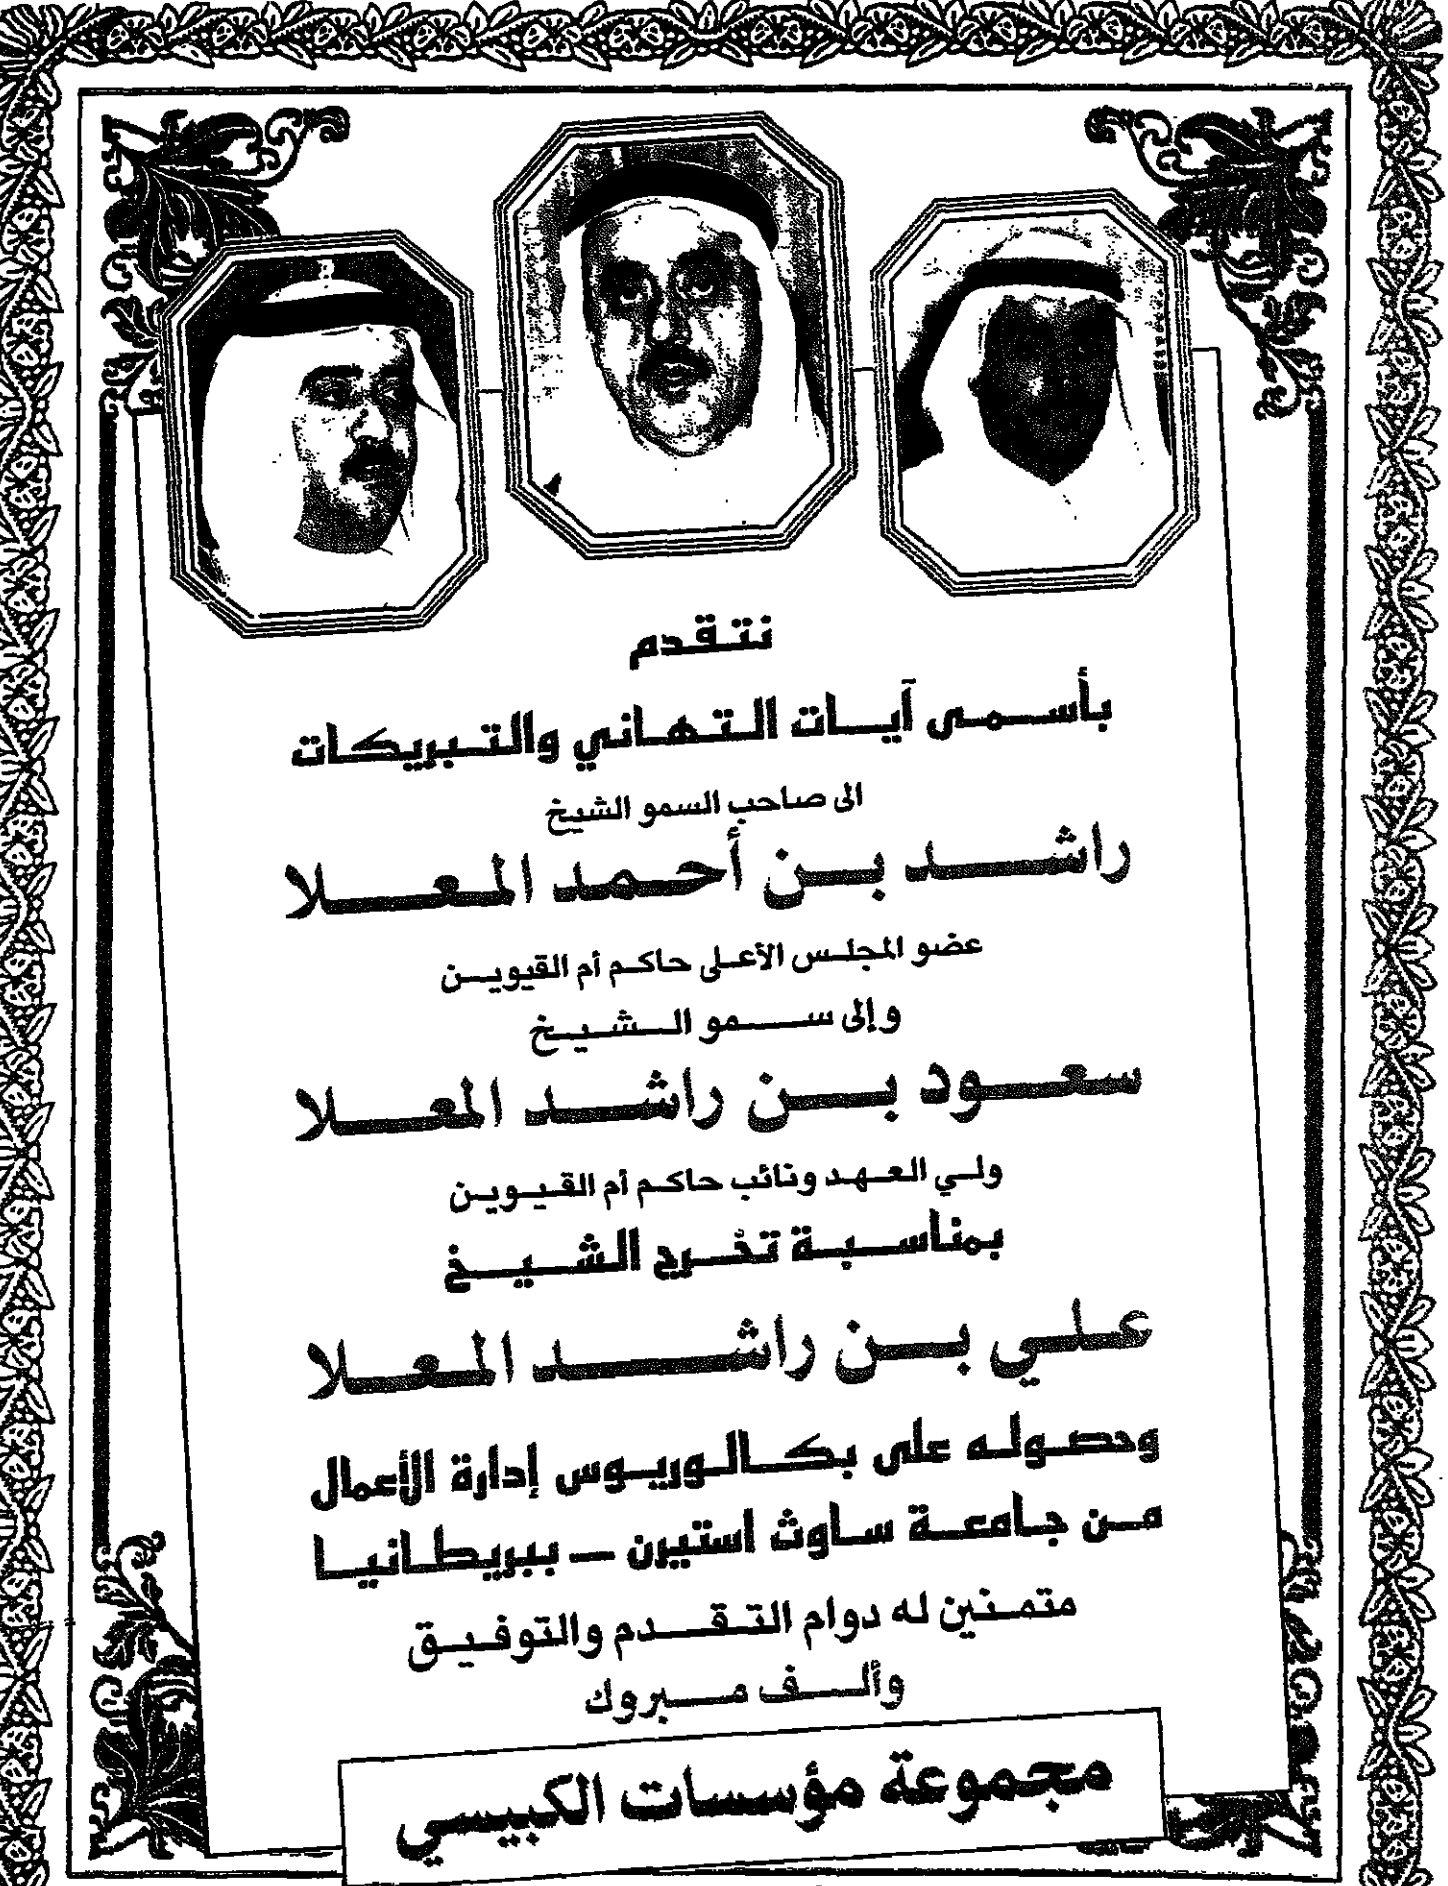 نتقدم
بأسمى آيات التهاني والتبريكات
الى صاحب السمو الشيخ
راشد بن أحمد المعلا
عضو المجلس الأعلى حاكم أم القيوين
وإلى سمو الشيخ
سعود بن راشد المعلا
ولي العهد ونائب حاكم أم القيوين
بمناسبة تخرج الشيخ
علي بن راشد المعلا
وحصوله على بكالوريوس إدارة الأعمال
من جامعة ساوث استيرن - ببريطانيا
متمنين له دوام التقدم والتوفيق
وألف مبروك
مجموعة مؤسسات الكبيسي